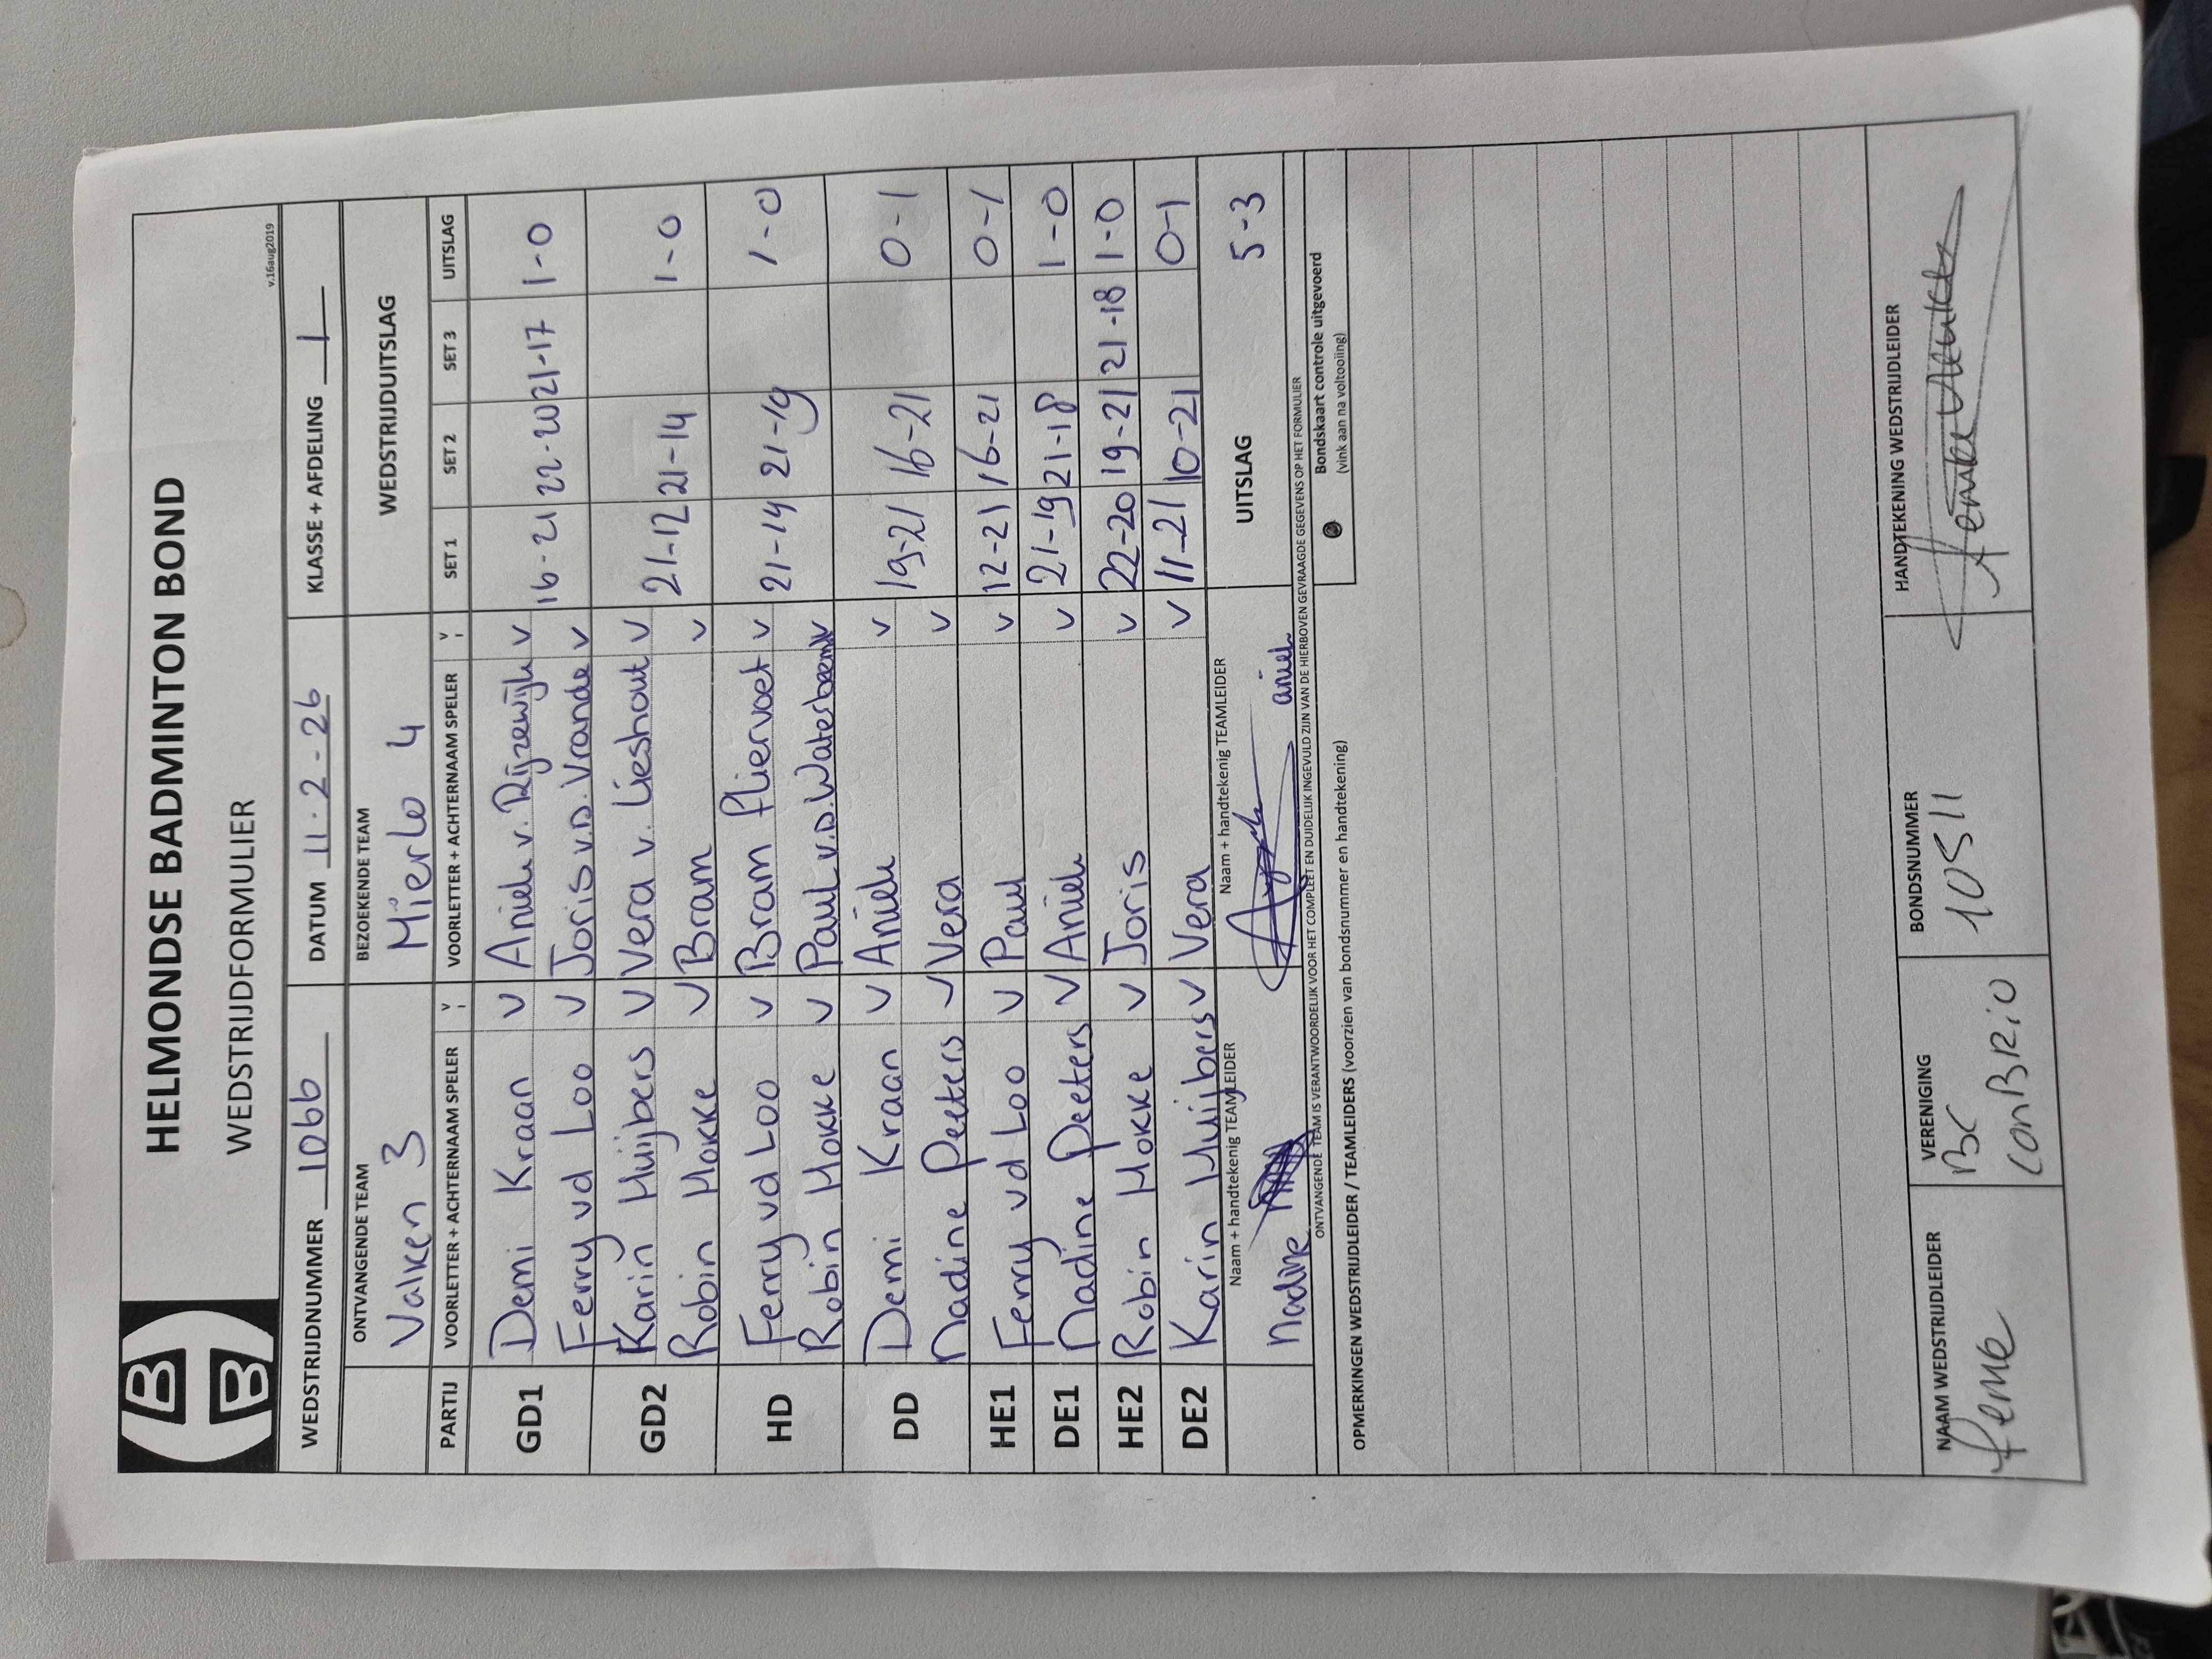 HELMONDSE BADMINTON BOND
WEDSTRIJDFORMULIER
v.16aug2019
WEDSTRIJDNUMMER 1066 DATUM 11-2-26 KLASSE + AFDELING 1
ONTVANGENDE TEAM BEZOEKENDE TEAM WEDSTRIJDUITSLAG
Valken 3 Mierlo 4
PARTIJ VOORLETTER + ACHTERNAAM SPELER V VOORLETTER + ACHTERNAAM SPELER V SET 1 SET 2 SET 3 UITSLAG
GD1 Demi Kraan V Aniek v. Rijzewijk V 16-21 22-20 21-17 1-0
Ferry vd Loo V Joris v.D. Vrande V
GD2 Karin Muijbers V Vera v. Lieshout V 21-12 21-14 1-0
Robin Mokke V Bram V
HD Ferry vd Loo V Bram fliervoet V 21-14 21-19 1-0
Robin Mokke V Paul v.D. Waterbeemd V
DD Demi Kraan V Aniek V 19-21 16-21 0-1
Nadine Peeters V Vera V
HE1 Ferry vd Loo V Paul V 12-21 16-21 0-1
DE1 Nadine Peeters V Aniek V 21-19 21-18 1-0
HE2 Robin Mokke V Joris V 22-20 19-21 21-18 1-0
DE2 Karin Muijbers V Vera V 11-21 10-21 0-1
Naam + handtekenig TEAMLEIDER Naam + handtekenig TEAMLEIDER UITSLAG 5-3
Nadine aniek
ONTVANGENDE TEAM IS VERANTWOORDELIJK VOOR HET COMPLEET EN DUIDELIJK INGEVULD ZIJN VAN DE HIERBOVEN GEVRAAGDE GEGEVENS OP HET FORMULIER
Bondskaart controle uitgevoerd
(vink aan na voltooling)
OPMERKINGEN WEDSTRIJDLEIDER / TEAMLEIDERS (voorzien van bondsnummer en handtekening)
NAAM WEDSTRIJDLEIDER VERENIGING BONDSNUMMER HANDTEKENING WEDSTRIJDLEIDER
BC 10511
conBRiO